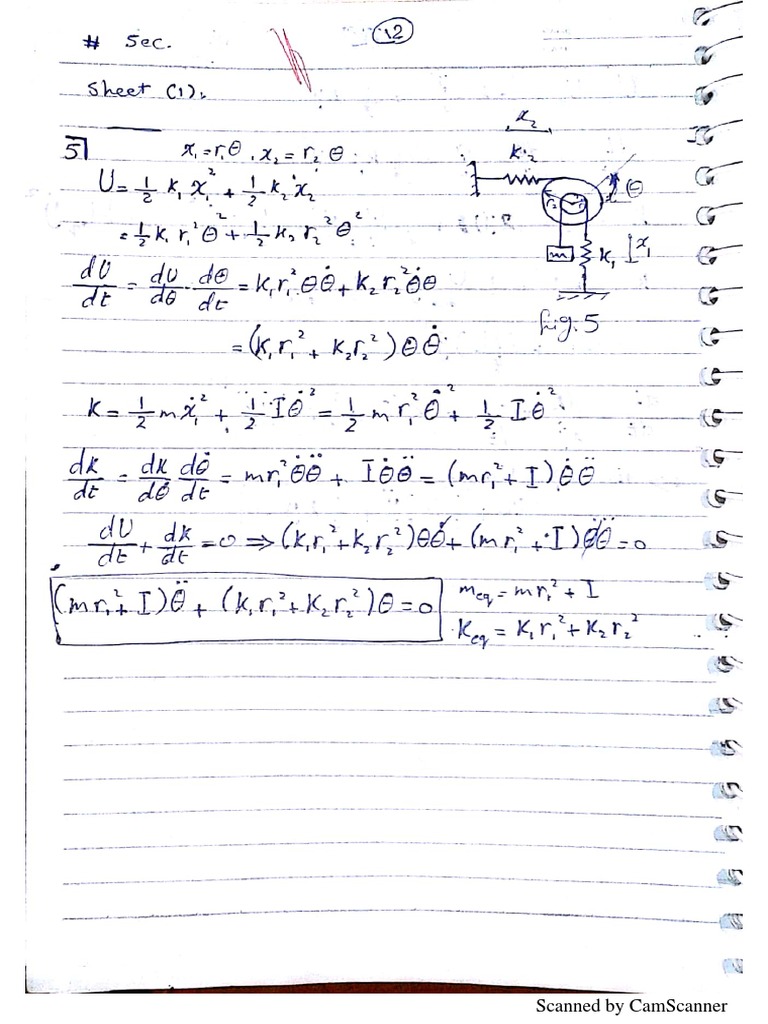 # Sec.
12
Sheet (1):
5] x₁=r₁θ, x₂ = r₂ θ
U = ½ k₁ x₁² + ½ k₂ x₂²
= ½ k₁ r₁² θ² + ½ k₂ r₂² θ²
dU/dt = dU/dθ · dθ/dt = k₁r₁² θθ̇ + k₂r₂² θ̇θ
= (k₁r₁² + k₂r₂²) θ θ̇
x₂
k₂
θ
r₂
r₁
m
k₁
x₁
fig. 5
k = ½ m ẋ₁² + ½ I θ̇² = ½ m r₁² θ̇² + ½ I θ̇²
dk/dt = dk/dθ̇ dθ̇/dt = mr₁² θ̇θ̈ + I θ̇ θ̈ = (mr₁² + I) θ̇ θ̈
dU/dt + dk/dt = 0 ⇒ (k₁r₁² + k₂r₂²) θθ̇ + (mr₁² + I) θ̇θ̈ = 0
(mr₁² + I) θ̈ + (k₁r₁² + k₂r₂²) θ = 0
m_eq = mr₁² + I
k_eq = k₁r₁² + k₂r₂²
Scanned by CamScanner